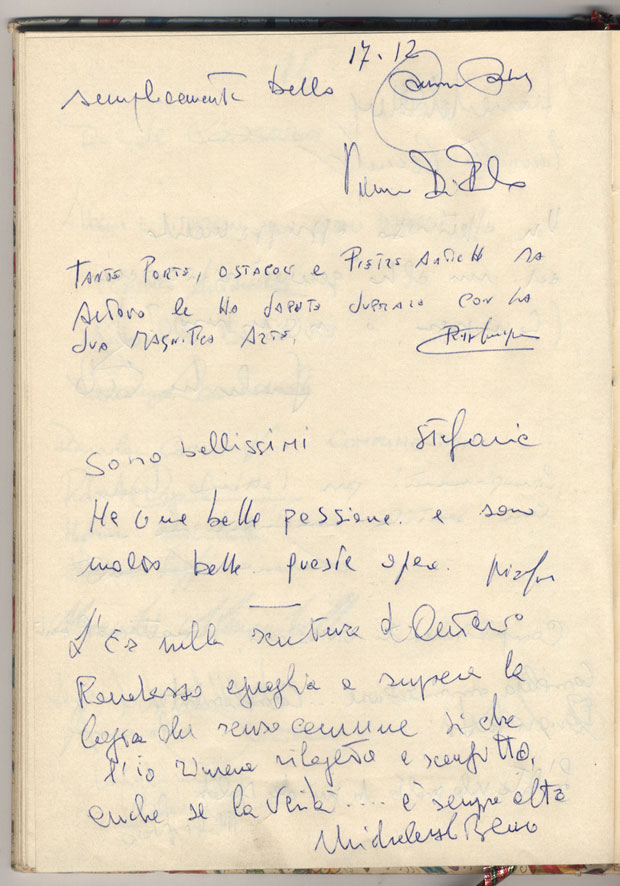 17.12
semplicemente bello
Tante Porte, ostacoli e Pietre Antiche ma
Arturo le ha saputo superare con la
sua magnifica Arte.
Sono bellissimi Stefania
Ha una bella passione. e sono
molto belle queste opere.
L'Es nella scultura d
egualia e supera la
senso comune si che
l'io rimane e sconfitto,
anche se la Verità .... e sempre alta